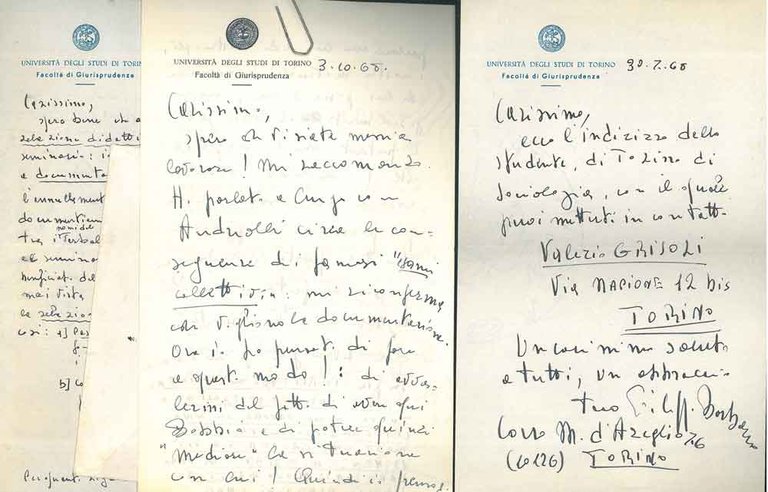 UNIVERSITÀ DEGLI STUDI DI TORINO
Facoltà di Giurisprudenza
Carissimo,
spero bene che
selezione didatti
seminario:
e documenta
l'annullament
documentien
nomi del
tra i
el semina
del
mai vista
la selezion
così: a]
b]
UNIVERSITÀ DEGLI STUDI DI TORINO 3.10.68.
Facoltà di Giurisprudenza
Carissimo,
spero che vi siate messi a
lavorare! Mi raccomando.
Ho parlato a lungo con
Andreolli circa le con-
seguenze dei famosi "esami
collettivi": mi riconferma
che vogliono la documentazione.
Ora io ho pensato di fare
a questo modo!: di avva-
lermi del fatto di aver qui
Bobbio e di poter quindi
"mediare" la situazione
con lui! Quindi io penso
UNIVERSITÀ DEGLI STUDI DI TORINO 30.7.68
Facoltà di Giurisprudenza
Carissimo,
ecco l'indirizzo dello
studente, di Torino di
Sociologia, con il quale
puoi metterti in contatto.
Valerio GRISOLI
Via NAZIONE 12 bis
TORINO
Un carissimo saluto
a tutti, un abbraccio
tuo Filippo Barbano
Corso M. d'Azeglio 76
(10126) TORINO